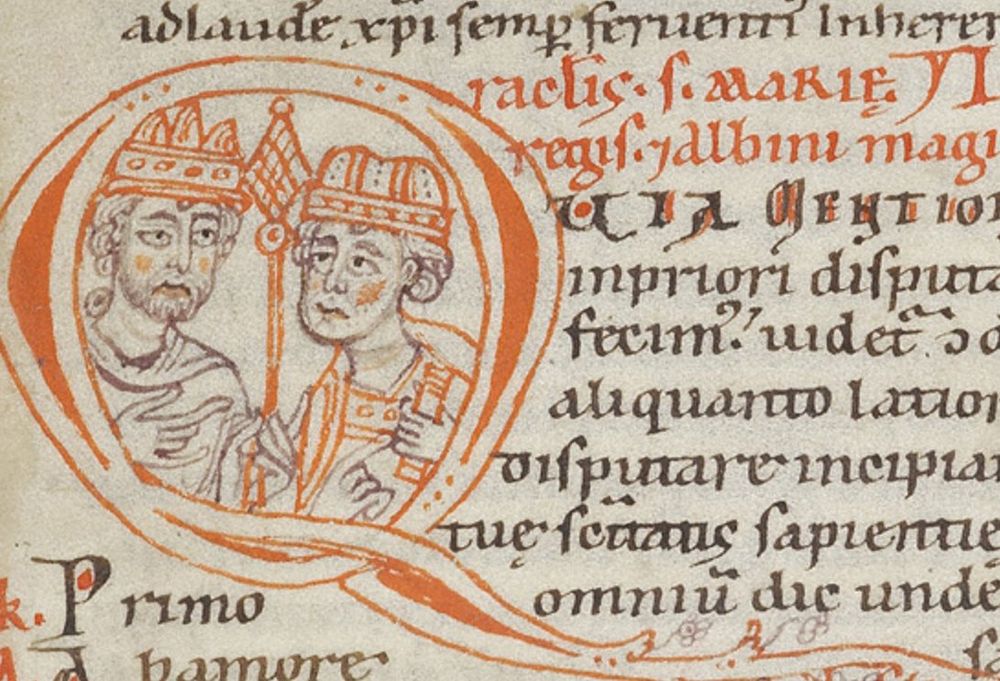 ad laude xpi semp feruenti Inheren
racłis. s. MARIĘ
regis. ⁊ Albini magi
QUIA Mention
in priori disputa
fecim᷒. uidet᷑ ɔ
aliquanto latior
disputare incipia
tuę scītatis sapientię
omniū dic unde
k. Primo
A bamore